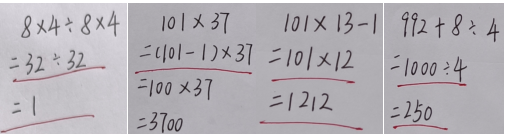 8×4÷8×4
=32÷32
=1
101×37
=(101-1)×37
=100×37
=3700
101×13-1
=101×12
=1212
992+8÷4
=1000÷4
=250